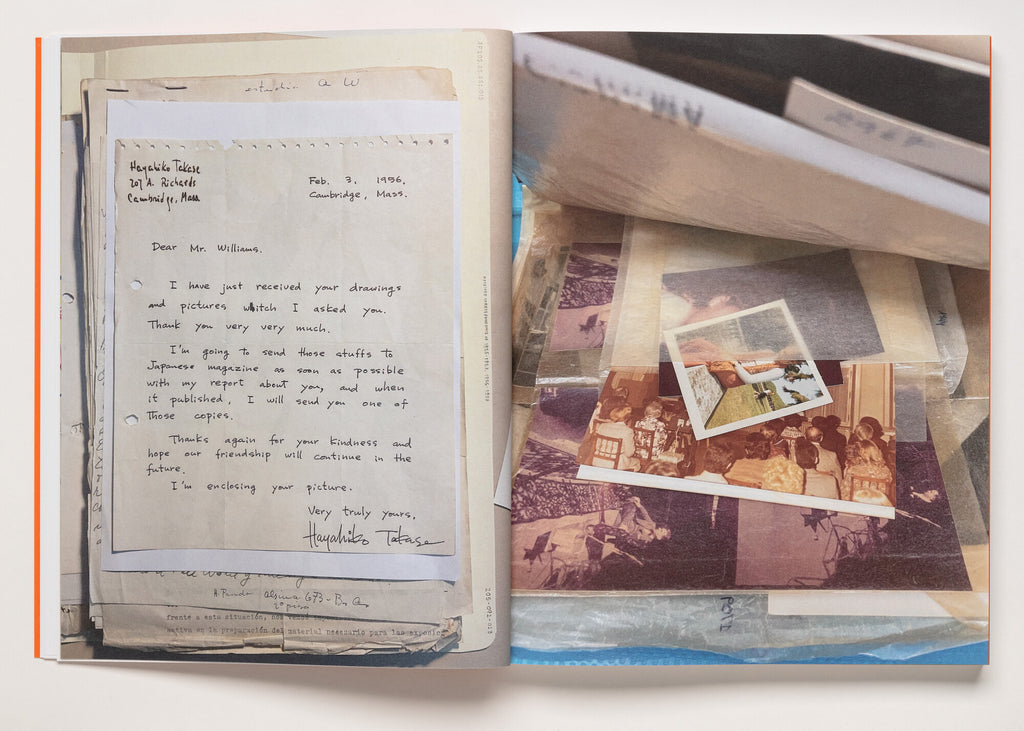 estudio A W
Hayahiko Takase
207 A. Richards
Cambridge, Mass.
Feb. 3, 1956,
Cambridge, Mass.
Dear Mr. Williams.
I have just received your drawings
and pictures whitch I asked you.
Thank you very very much.
I'm going to send those stuffs to
Japanese magazine as soon as possible
with my report about you, and when
it published, I will send you one of
those copies.
Thanks again for your kindness and
hope our friendship will continue in the
future.
I'm enclosing your picture.
Very truly yours,
Hayahiko Takase
Alsina 673 - Bs As
2º piso
frente a esta situación, nos
mativa en la preparación del material necesario para las exposic
205-092-013